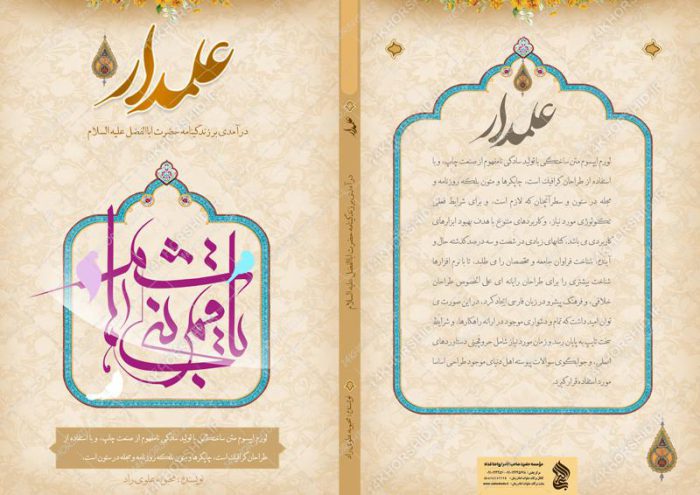 علمدار
درآمدی بر زندگینامه حضرت اباالفضل علیه السلام
یا قمر بنی هاشم
لورم ایپسوم متن ساختگی با تولید سادگی نامفهوم از صنعت چاپ، و با استفاده از
طراحان گرافیک است، چاپگرها و متون بلکه روزنامه و مجله در ستون است.
نویسنده: محبوبه علوی راد
علمدار
درآمدی بر زندگینامه حضرت اباالفضل علیه السلام
نویسنده: محبوبه علوی راد
علمدار
لورم ایپسوم متن ساختگی با تولید سادگی نامفهوم از صنعت چاپ، و با
استفاده از طراحان گرافیک است، چاپگرها و متون بلکه روزنامه و
مجله در ستون و سطرآنچنان که لازم است، و برای شرایط فعلی
تکنولوژی مورد نیاز، و کاربردهای متنوع با هدف بهبود ابزارهای
کاربردی می باشد، کتابهای زیادی در شصت و سه درصد گذشته حال و
آینده، شناخت فراوان جامعه و متخصصان را می طلبد، تا با نرم افزارها
شناخت بیشتری را برای طراحان رایانه ای علی الخصوص طراحان
خلاقی، و فرهنگ پیشرو در زبان فارسی ایجاد کرد، در این صورت می
توان امید داشت که تمام و دشواری موجود در ارائه راهکارها، و شرایط
سخت تایپ به پایان رسد و زمان مورد نیاز شامل حروفچینی دستاوردهای
اصلی، و جوابگوی سوالات پیوسته اهل دنیای موجود طراحی اساسا
مورد استفاده قرار گیرد.